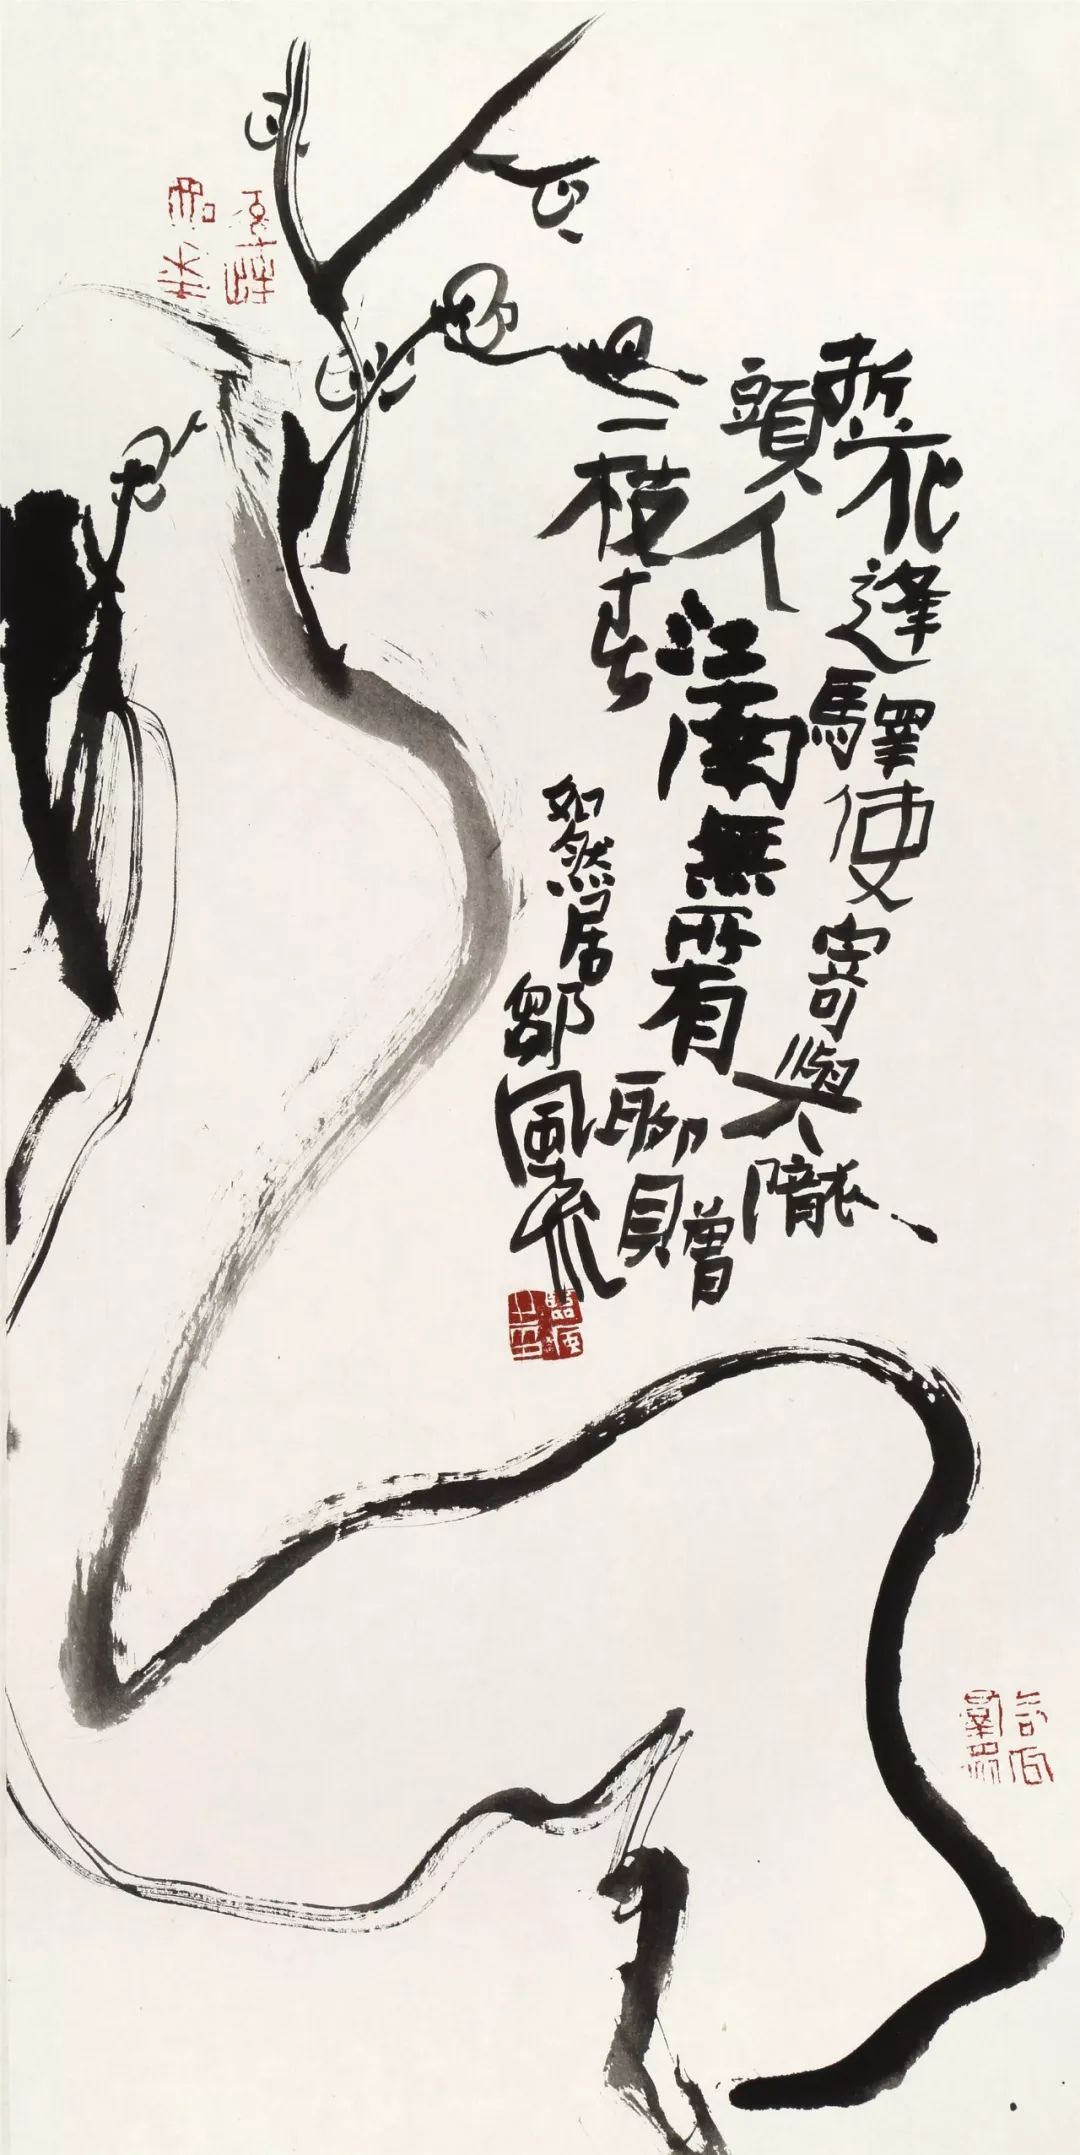 折花逢驛使寄與隴
頭人江南無所有聊贈
一枝春
如然居鄒風